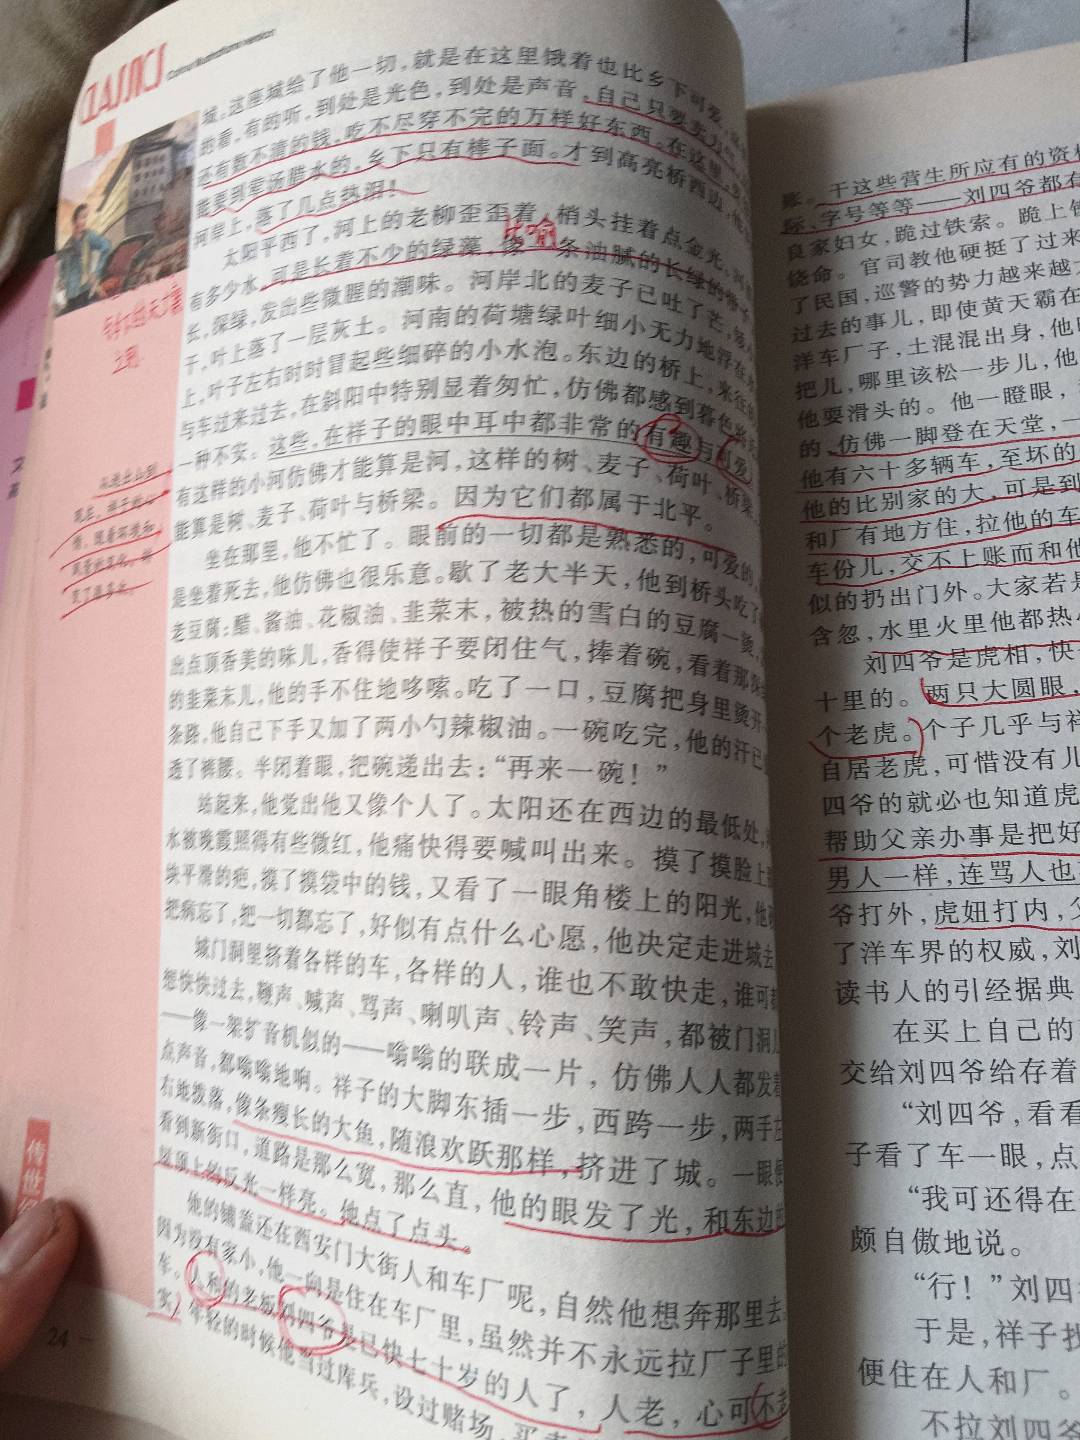 CLASSICS
城。这座城给了他一切，就是在这里饿着也比乡下可爱，
的看，有的听，到处是光色，到处是声音。自己只要卖力气，
还有数不清的钱，吃不尽穿不完的万样好东西。在这里，
能要到荤汤腊水的，乡下只有棒子面。才到高亮桥西边，他
河岸上，落了几点热泪！
太阳平西了，河上的老柳歪歪着，梢头挂着点金光。河
有多少水，可是长着不少的绿藻，像一条油腻的长绿的带子，
长，深绿，发出些微腥的潮味。河岸北的麦子已吐了芒，矮小
干，叶上落了一层灰土。河南的荷塘绿叶细小无力地浮在水
上，叶子左右时时冒起些细碎的小水泡。东边的桥上，来往的
与车过来过去，在斜阳中特别显着匆忙，仿佛都感到暮色将近
一种不安。这些，在祥子的眼中耳中都非常的有趣与可爱。
有这样的小河仿佛才能算是河，这样的树、麦子、荷叶、桥梁，
能算是树、麦子、荷叶与桥梁。因为它们都属于北平。
坐在那里，他不忙了。眼前的一切都是熟悉的，可爱的，
是坐着死去，他仿佛也很乐意。歇了老大半天，他到桥头吃了
老豆腐：醋、酱油、花椒油、韭菜末，被热的雪白的豆腐一烫，
出点顶香美的味儿，香得使祥子要闭住气，捧着碗，看着那深
的韭菜末儿，他的手不住地哆嗦。吃了一口，豆腐把身里烫开
条路，他自己下手又加了两小勺辣椒油。一碗吃完，他的汗已
透了裤腰。半闭着眼，把碗递出去：“再来一碗！”
站起来，他觉出他又像个人了。太阳还在西边的最低处，
水被晚霞照得有些微红，他痛快得要喊叫出来。摸了摸脸上
块平滑的疤，摸了摸袋中的钱，又看了一眼角楼上的阳光，他
把病忘了，把一切都忘了，好似有点什么心愿，他决定走进城去
城门洞里挤着各样的车，各样的人，谁也不敢快走，谁可都
想快快过去，鞭声、喊声、骂声、喇叭声、铃声、笑声，都被门洞儿
——像一架扩音机似的——嗡嗡的联成一片，仿佛人人都发着
点声音，都嗡嗡地响。祥子的大脚东插一步，西跨一步，两手左
右地拨落，像条瘦长的大鱼，随浪欢跃那样，挤进了城。一眼便
看到新街口，道路是那么宽，那么直，他的眼发了光，和东边的
屋顶上的反光一样亮。他点了点头。
他的铺盖还在西安门大街人和车厂呢，自然他想奔那里去。
因为没有家小，他一向是住在车厂里，虽然并不永远拉厂子里的
车。人和的老板刘四爷是已快七十岁的人了，人老，心可不老
实。年轻的时候他当过库兵，设过赌场，买卖
比喻
传世
24
账。干这些营生所应有的资格
际、字号等等——刘四爷都有
良家妇女，跪过铁索。跪上铁
饶命。官司教他硬挺了过来
了民国，巡警的势力越来越大
过去的事儿，即使黄天霸在
洋车厂子，土混混出身，他
把儿，哪里该松一步儿，他
他耍滑头的。他一瞪眼，
的，仿佛一脚登在天堂，一
他有六十多辆车，至坏的
他的比别家的大，可是到
和厂有地方住，拉他的车
车份儿，交不上账而和他
似的扔出门外。大家若是
含忽，水里火里他都热心
刘四爷是虎相，快
十里的。两只大圆眼，
个老虎。个子几乎与祥
自居老虎，可惜没有儿
四爷的就必也知道虎
帮助父亲办事是把好
男人一样，连骂人也
爷打外，虎妞打内，父
了洋车界的权威，刘
读书人的引经据典
在买上自己的
交给刘四爷给存着
“刘四爷，看看
子看了车一眼，点
“我可还得在
颇自傲地说。
“行！”刘四
于是，祥子找
便住在人和厂。
不拉刘四爷